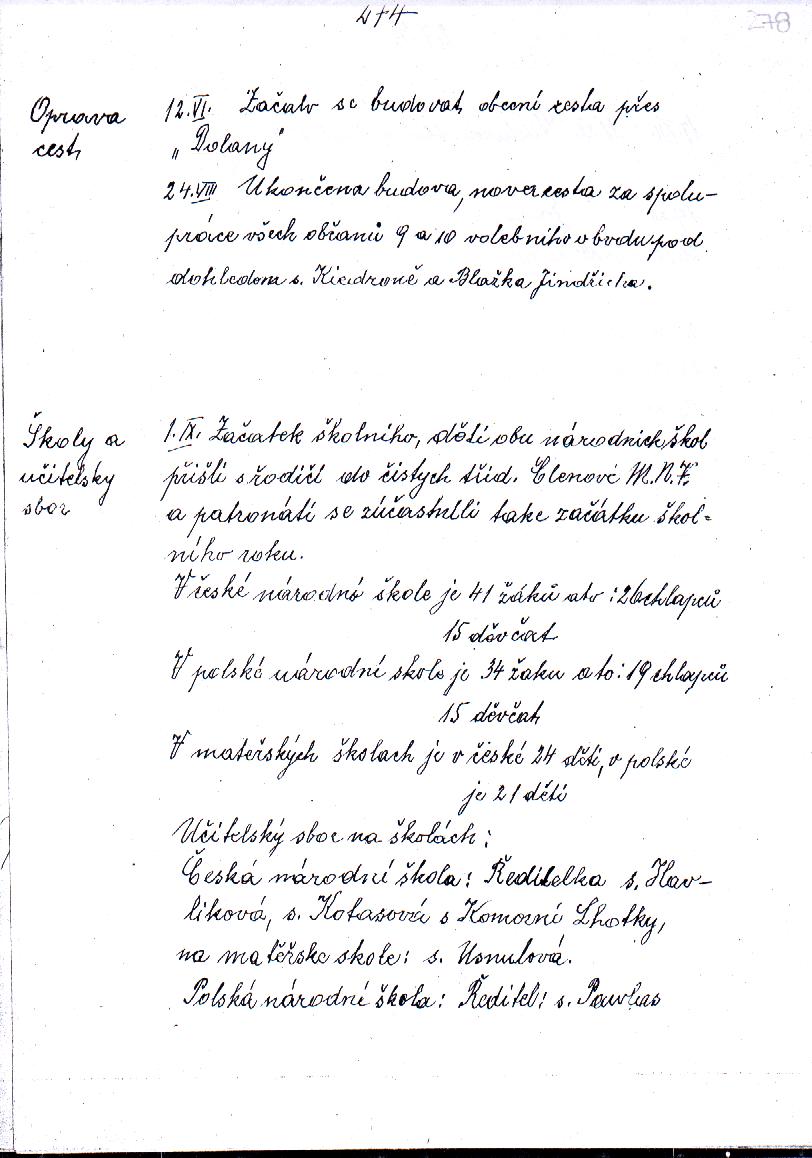 474
278
Oprava
cest
12.VI. Začalo se budovat obecní cesta přes
„Dolany"
24.VIII Ukončena budova, nova cesta za spolu-
práce všech občanů 9 a 10 volebního obvodu pod
dohledom s. Kiedroně a Blažka Jindřicha.
Školy a
učitelsky
sbor
1.IX. Začatek školního, děti obu národnich škol
přišli s rodiči do čistych třid. Členové M.N.V.
a patronáti se zúčastnili take začátku škol-
ního roku.
V české národní škole je 41 žáků a to: 26 chlapců
15 děvčat
V polské národní skole je 34 žaku a to: 19 chlapců
15 děvčat
V mateřských školach je v české 24 děti, v polské
je 21 děti
Učitelský sbor na školách:
Česká národní škola: Ředitelka s. Hav-
liková, s. Kotasová s Komorní Lhotky,
na matěřske skole: s. Usnulová.
Polská národní škola: Ředitel: s. Pawlas